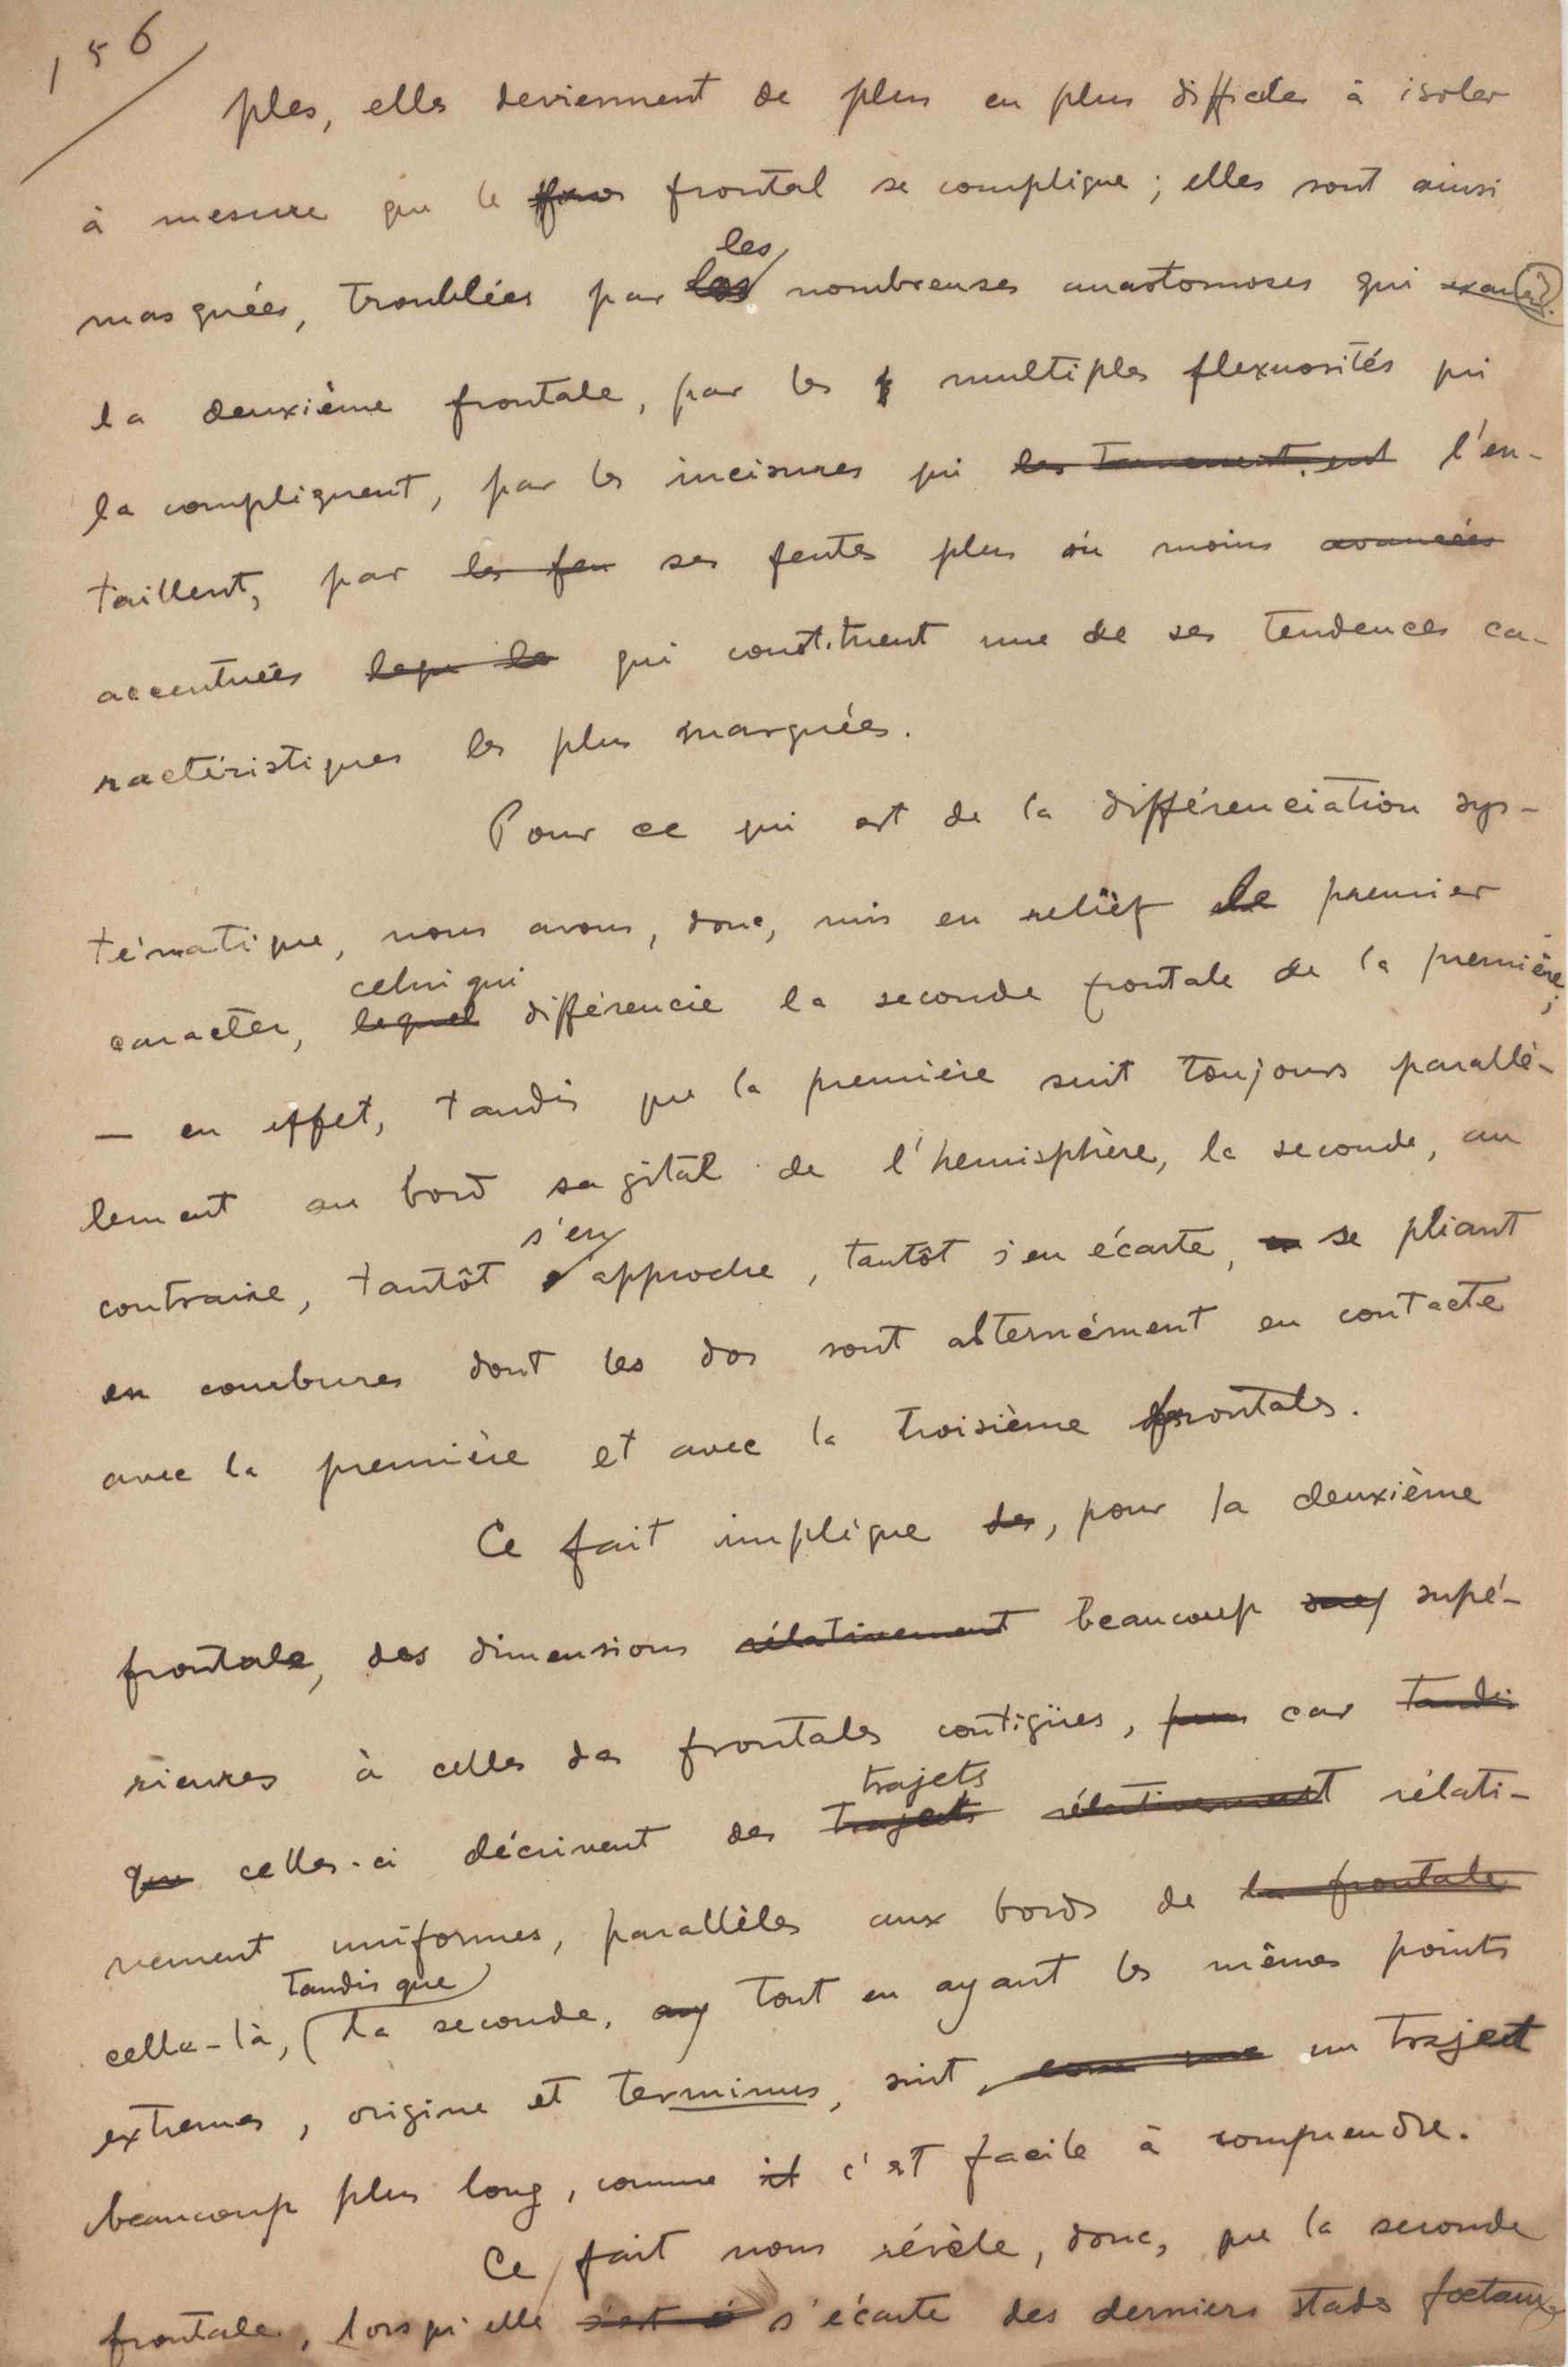 156
ples, elles deviennent de plus en plus difficiles à isoler
à mesure que le frontal se complique ; elles sont ainsi
les
masquées, troublées par nombreuses anastomoses qui
la deuxième frontale, par les multiples flexuosités qui
la compliquent, par les incisures qui l'en-
taillent, par les feu ses fentes plus ou moins avancées
accentuées qui constituent une de ses tendences ca-
ractéristiques les plus marquées.
Pour ce qui est de la différenciation sys-
tématique, nous avons, donc, mis en relief le premier
celui qui
caracter, lequel différencie la seconde frontale de la première ;
— en effet, tandis que la première suit toujours parallè-
lement au bord sagital de l'hemisphère, la seconde, au
s'en
contraire, tantôt approche, tantôt s'en écarte, se pliant
en courbures dont les dos sont alternément en contacte
avec la première et avec la troisième frontales.
Ce fait implique des, pour la deuxième
frontale, des dimensions rélativement beaucoup supé-
rieures à celles des frontales contigües, car tandis
trajets
que celles-ci décrivent des trajects rélativement rélati-
vement uniformes, parallèles aux bords de la frontale
tandis que
celle-là, (la seconde, ay tout en ayant les mêmes points
extremes, origine et terminus, suit un traject
beaucoup plus long, comme il c'est facile à comprendre.
Ce fait nous révèle, donc, que la seconde
frontale, lorsqu'elle s'est s'écarte des derniers stades foetaux